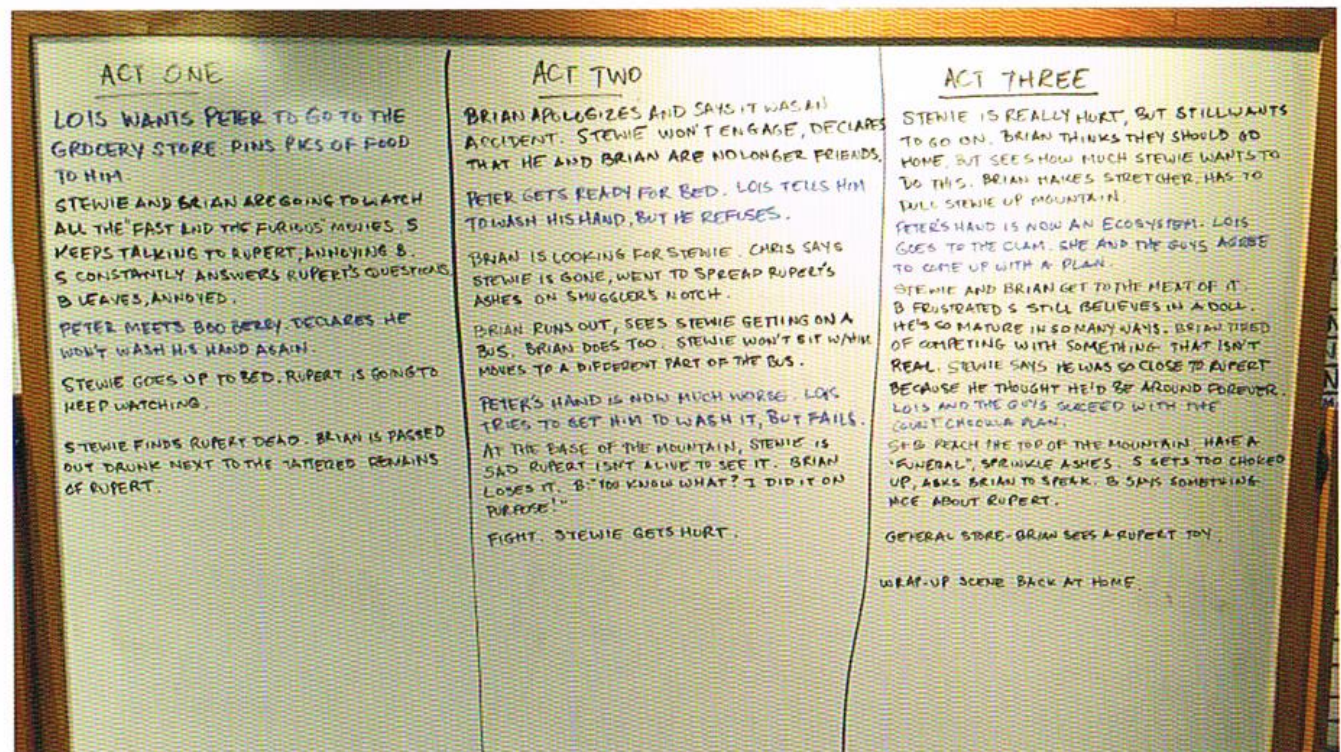 ACT ONE
LOIS WANTS PETER TO GO TO THE
GROCERY STORE. PINS PICS OF FOOD
TO HIM.
STEWIE AND BRIAN ARE GOING TO WATCH
ALL THE "FAST AND THE FURIOUS" MOVIES. S
KEEPS TALKING TO RUPERT, ANNOYING B.
S CONSTANTLY ANSWERS RUPERT'S QUESTIONS.
B LEAVES, ANNOYED.
PETER MEETS BOO BERRY. DECLARES HE
WON'T WASH HIS HAND AGAIN.
STEWIE GOES UP TO BED. RUPERT IS GOING TO
KEEP WATCHING.
STEWIE FINDS RUPERT DEAD. BRIAN IS PASSED
OUT DRUNK NEXT TO THE TATTERED REMAINS
OF RUPERT.
ACT TWO
BRIAN APOLOGIZES AND SAYS IT WAS AN
ACCIDENT. STEWIE WON'T ENGAGE, DECLARES
THAT HE AND BRIAN ARE NO LONGER FRIENDS.
PETER GETS READY FOR BED. LOIS TELLS HIM
TO WASH HIS HAND, BUT HE REFUSES.
BRIAN IS LOOKING FOR STEWIE. CHRIS SAYS
STEWIE IS GONE, WENT TO SPREAD RUPERT'S
ASHES ON SMUGGLER'S NOTCH.
BRIAN RUNS OUT, SEES STEWIE GETTING ON A
BUS. BRIAN DOES TOO. STEWIE WON'T SIT W/HIM
MOVES TO A DIFFERENT PART OF THE BUS.
PETER'S HAND IS NOW MUCH WORSE. LOIS
TRIES TO GET HIM TO WASH IT, BUT FAILS.
AT THE BASE OF THE MOUNTAIN, STEWIE IS
SAD RUPERT ISN'T ALIVE TO SEE IT. BRIAN
LOSES IT. B: "YOU KNOW WHAT? I DID IT ON
PURPOSE!"
FIGHT. STEWIE GETS HURT.
ACT THREE
STEWIE IS REALLY HURT, BUT STILL WANTS
TO GO ON. BRIAN THINKS THEY SHOULD GO
HOME, BUT SEES HOW MUCH STEWIE WANTS TO
DO THIS. BRIAN MAKES STRETCHER, HAS TO
PULL STEWIE UP MOUNTAIN.
PETER'S HAND IS NOW AN ECOSYSTEM. LOIS
GOES TO THE CLAM. SHE AND THE GUYS AGREE
TO COME UP WITH A PLAN.
STEWIE AND BRIAN GET TO THE MEAT OF IT.
B FRUSTRATED S STILL BELIEVES IN A DOLL.
HE'S SO MATURE IN SO MANY WAYS. BRIAN TIRED
OF COMPETING WITH SOMETHING THAT ISN'T
REAL. STEWIE SAYS HE WAS SO CLOSE TO RUPERT
BECAUSE HE THOUGHT HE'D BE AROUND FOREVER.
LOIS AND THE GUYS SUCCEED WITH THE
COUNT CHOCULA PLAN.
S+B REACH THE TOP OF THE MOUNTAIN. HAVE A
"FUNERAL", SPRINKLE ASHES. S GETS TOO CHOKED
UP, ASKS BRIAN TO SPEAK. B SAYS SOMETHING
NICE ABOUT RUPERT.
GENERAL STORE - BRIAN SEES A RUPERT TOY.
WRAP-UP SCENE BACK AT HOME.